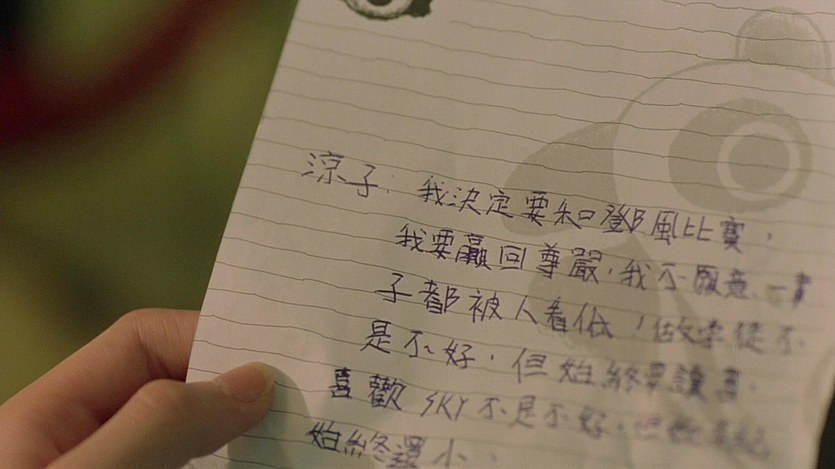 涼子：我決定要和鄧風比賽，
我要贏回尊嚴，我不願意一輩
子都被人看低！做學徒不
是不好，但始終要讀書，
喜歡SKY不是不好，但
始終還小。